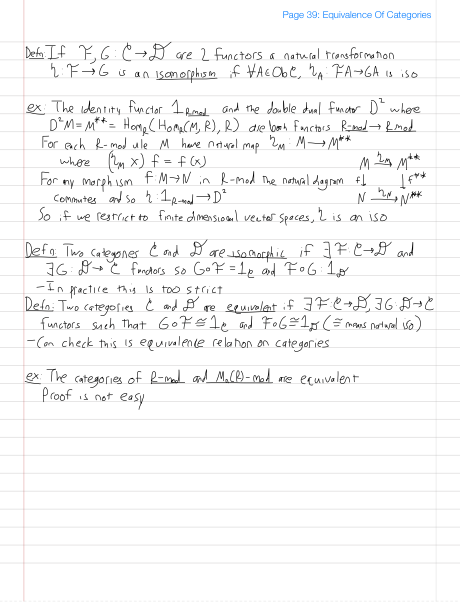 Page 39: Equivalence Of Categories
Defn: If F, G: C→D are 2 functors a natural transformation
η: F→G is an isomorphism if ∀A∈Ob C, η_A: FA→GA is iso
ex: The identity functor 1_R-mod and the double dual functor D² where
D²M = M** = Hom_R(Hom_R(M, R), R) are both functors R-mod → R-mod
For each R-module M have natural map η_M: M→M**
where (η_M x) f = f(x)
M →η_M M**
For any morphism f: M→N in R-mod the natural diagram f↓ ↓f**
commutes and so η: 1_R-mod → D²
N →η_N N**
So if we restrict to finite dimensional vector spaces, η is an iso
Defn: Two categories C and D are isomorphic if ∃F: C→D and
∃G: D→C functors so G∘F = 1_C and F∘G: 1_D
- In practice this is too strict
Defn: Two categories C and D are equivalent if ∃F: C→D, ∃G: D→C
functors such that G∘F ≅ 1_C and F∘G ≅ 1_D (≅ means natural iso)
- Can check this is equivalence relation on categories
ex: The categories of R-mod and M_n(R)-mod are equivalent
Proof is not easy